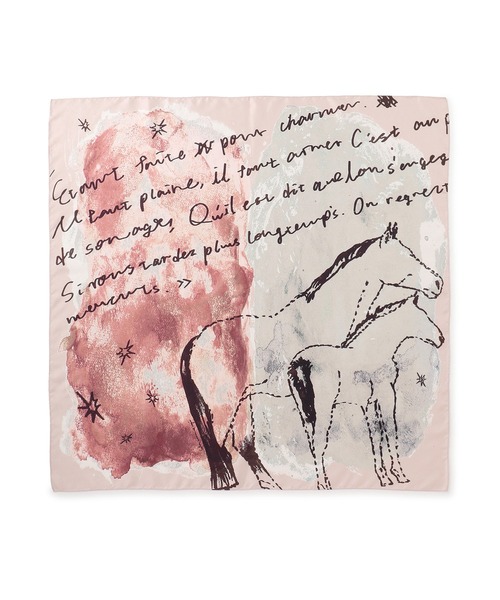 Étant faite pour charmer.
Il faut plaire, il faut aimer C'est au p
de son age, Qu'il est dit que l'on s'engag
Si vous tardez plus longtemps. On regrett
»